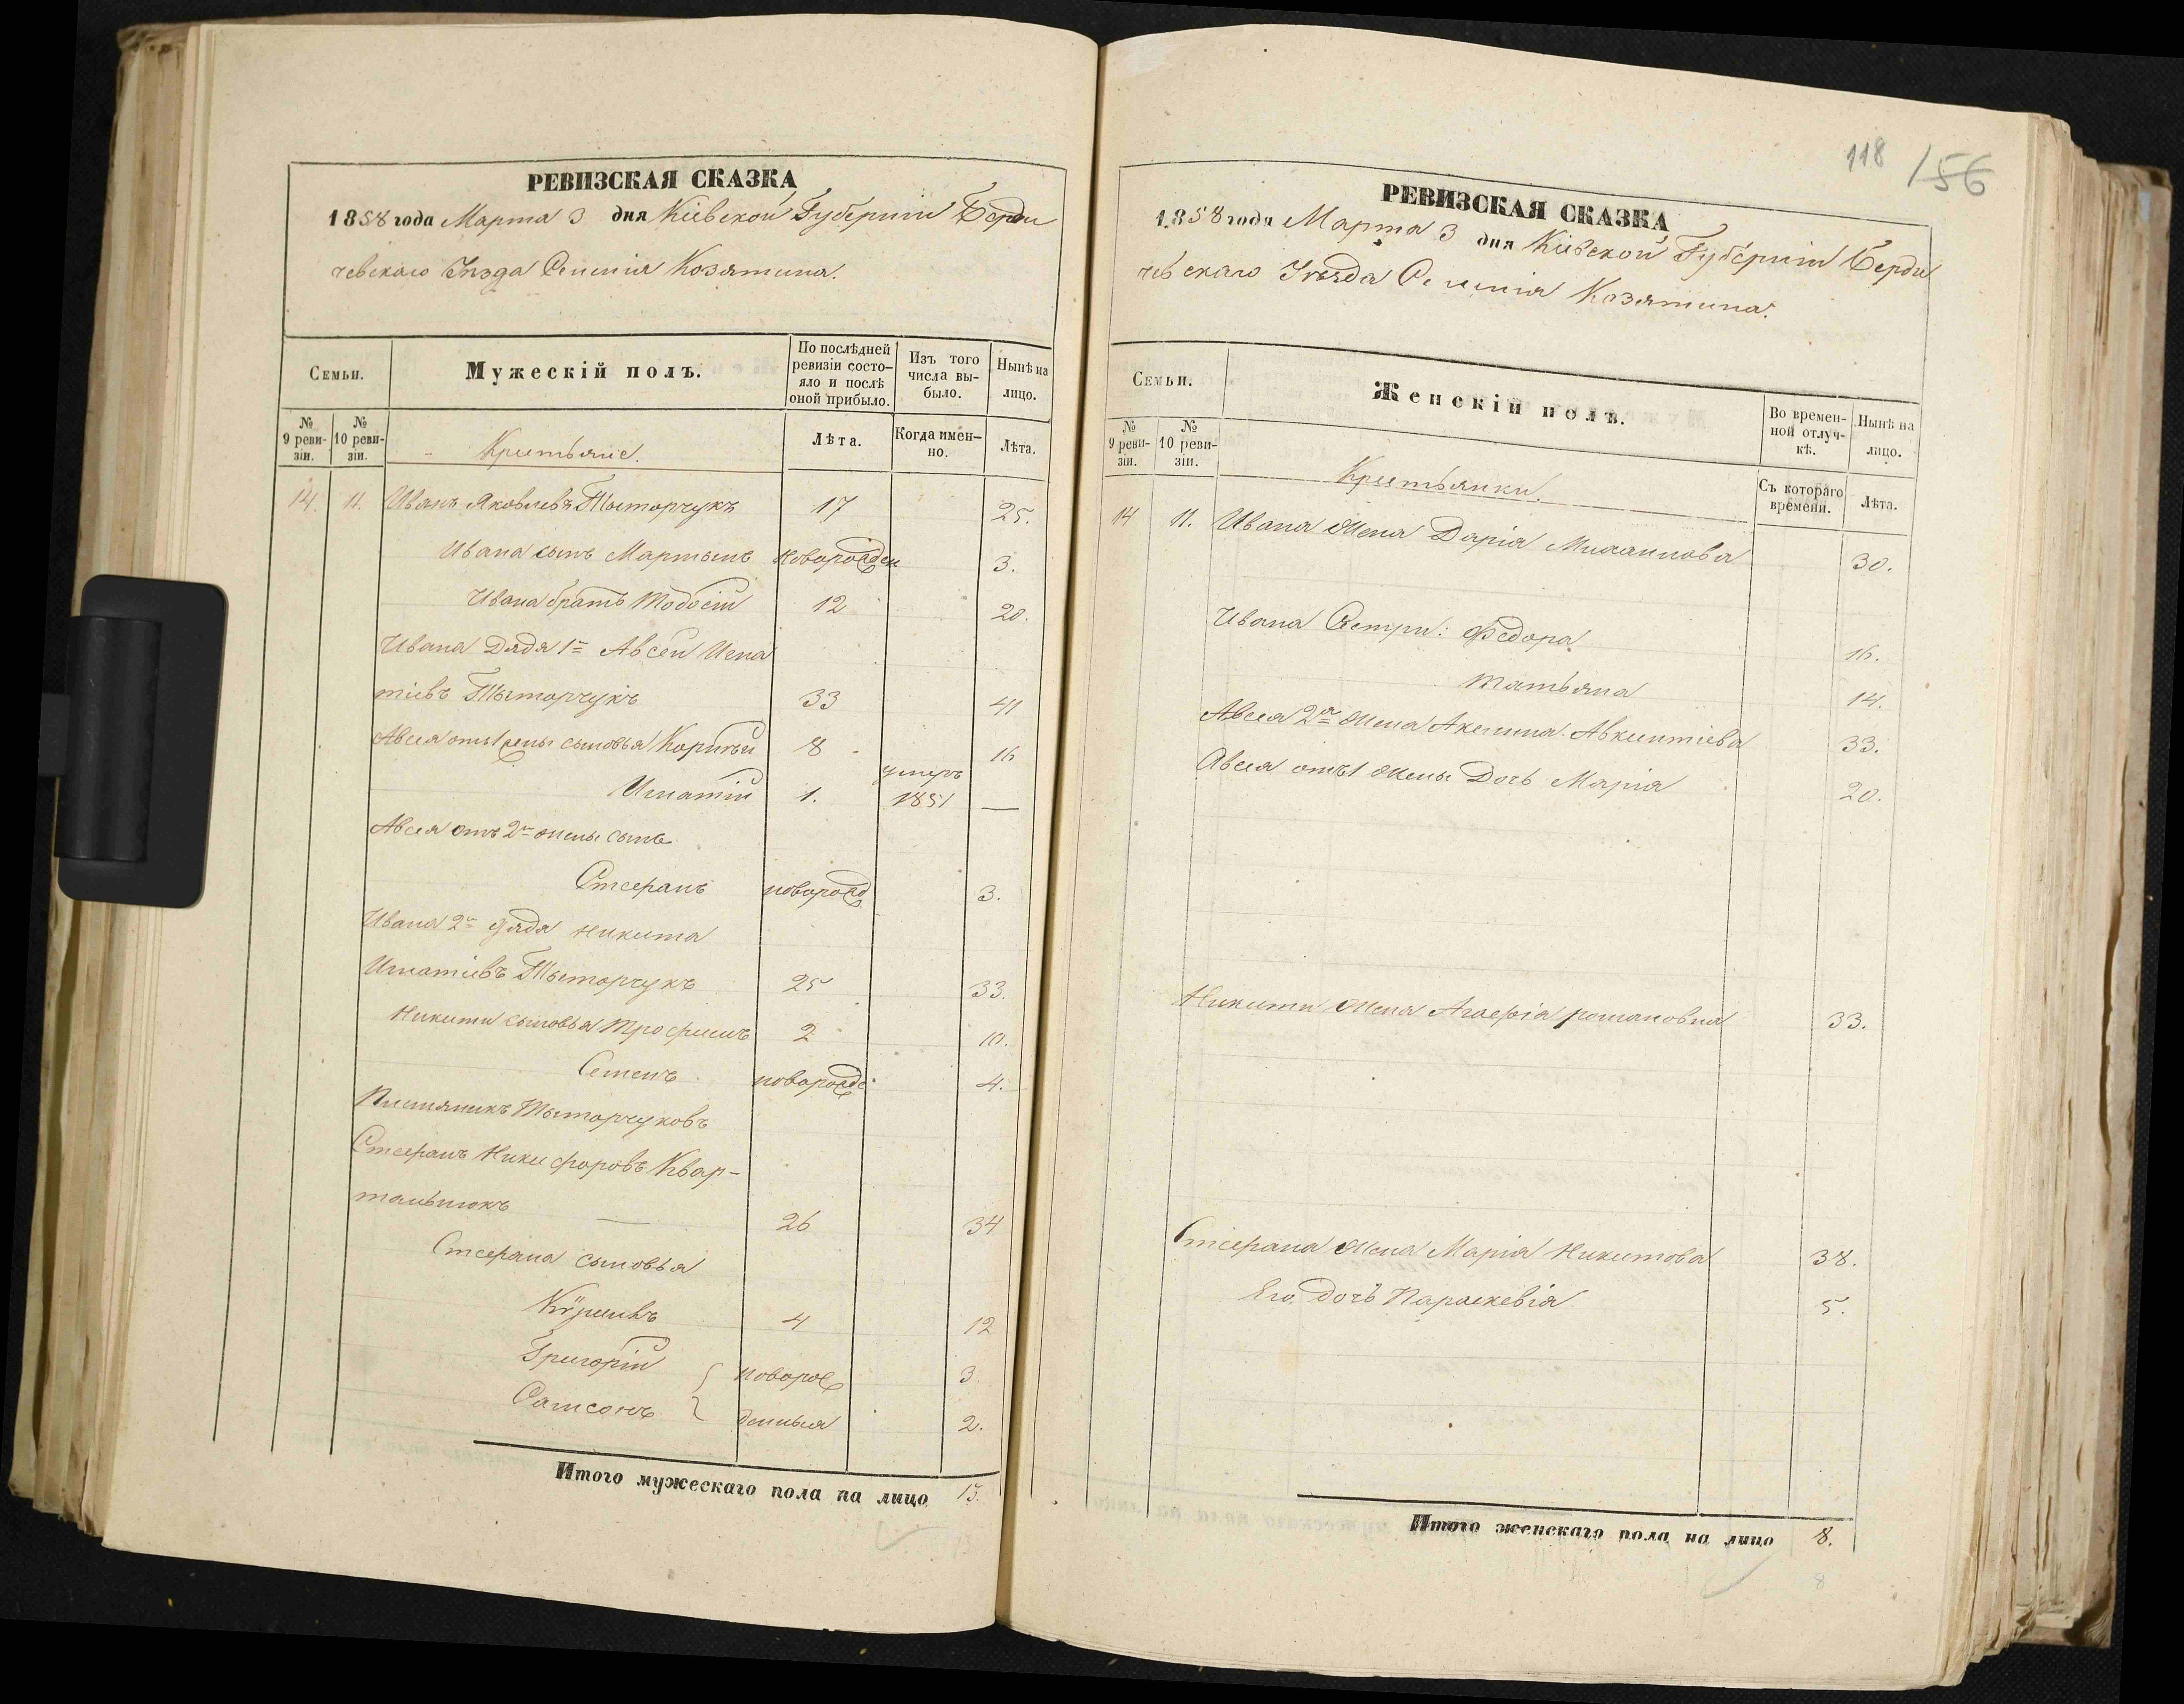 РЕВИЗСКАЯ СКАЗКА
1858 года Марта 3 дня Кіевской Губерніи Берди
чевскаго Уѣзда Селенія Козятина.
Семьи.
Мужескій полъ.
По послѣдней ревизіи состо-
яло и послѣ оной прибыло.
Изъ того числа вы-
было.
Нынѣ на лицо.
№ 9 реви-
зіи.
№ 10 реви-
зіи.
Крестьяне.
Лѣта.
Когда имен-
но.
Лѣта.
14. 11. Иванъ Яковлевъ Тыторчукъ 17 25.
Ивана сынъ Мартынъ новорожден 3.
Ивана братъ Тодосій 12 20.
Ивана Дядя 1й Авсей Игна
тіевъ Тыторчукъ 33 41
Авсея отъ 1 жены сыновья Корнѣй 8 16
Игнатій 1. умеръ 1851 —
Авсея отъ 2й жены сынъ
Стефанъ новорожд 3.
Ивана 2й дядя Никита
Игнатіевъ Тыторчукъ 25 33.
Никиты сыновья Трофимъ 2 10.
Семенъ новорожде 4.
Племяникъ Тыторчуковъ
Стефанъ Никифоровъ Квар-
тальнюкъ — 26 34
Стефана сыновья
Кузьма 4 12
Григорій новорож 3
Самсонъ денныя 2.
Итого мужескаго пола на лицо 13.
118 156
РЕВИЗСКАЯ СКАЗКА
1858 года Марта 3 дня Кіевской Губерніи Берди
чевскаго Уѣзда Селенія Козятина.
Семьи.
Женскій полъ.
Во времен-
ной отлуч-
кѣ.
Нынѣ на лицо.
№ 9 реви-
зіи.
№ 10 реви-
зіи.
Крестьянки.
Съ котораго времени.
Лѣта.
14 11. Ивана жена Дарія Михаилова 30.
Ивана Сестри: Федора 16.
Татьяна 14.
Авсея 2я жена Акелина Авкинтіева 33.
Авсея отъ 1 жены Дочь Марія 20.
Никити жена Агафія романовна 33.
Стефана жена Марія Никитова 38.
Его дочь Параскевія 5.
Итого женскаго пола на лицо 8.
8